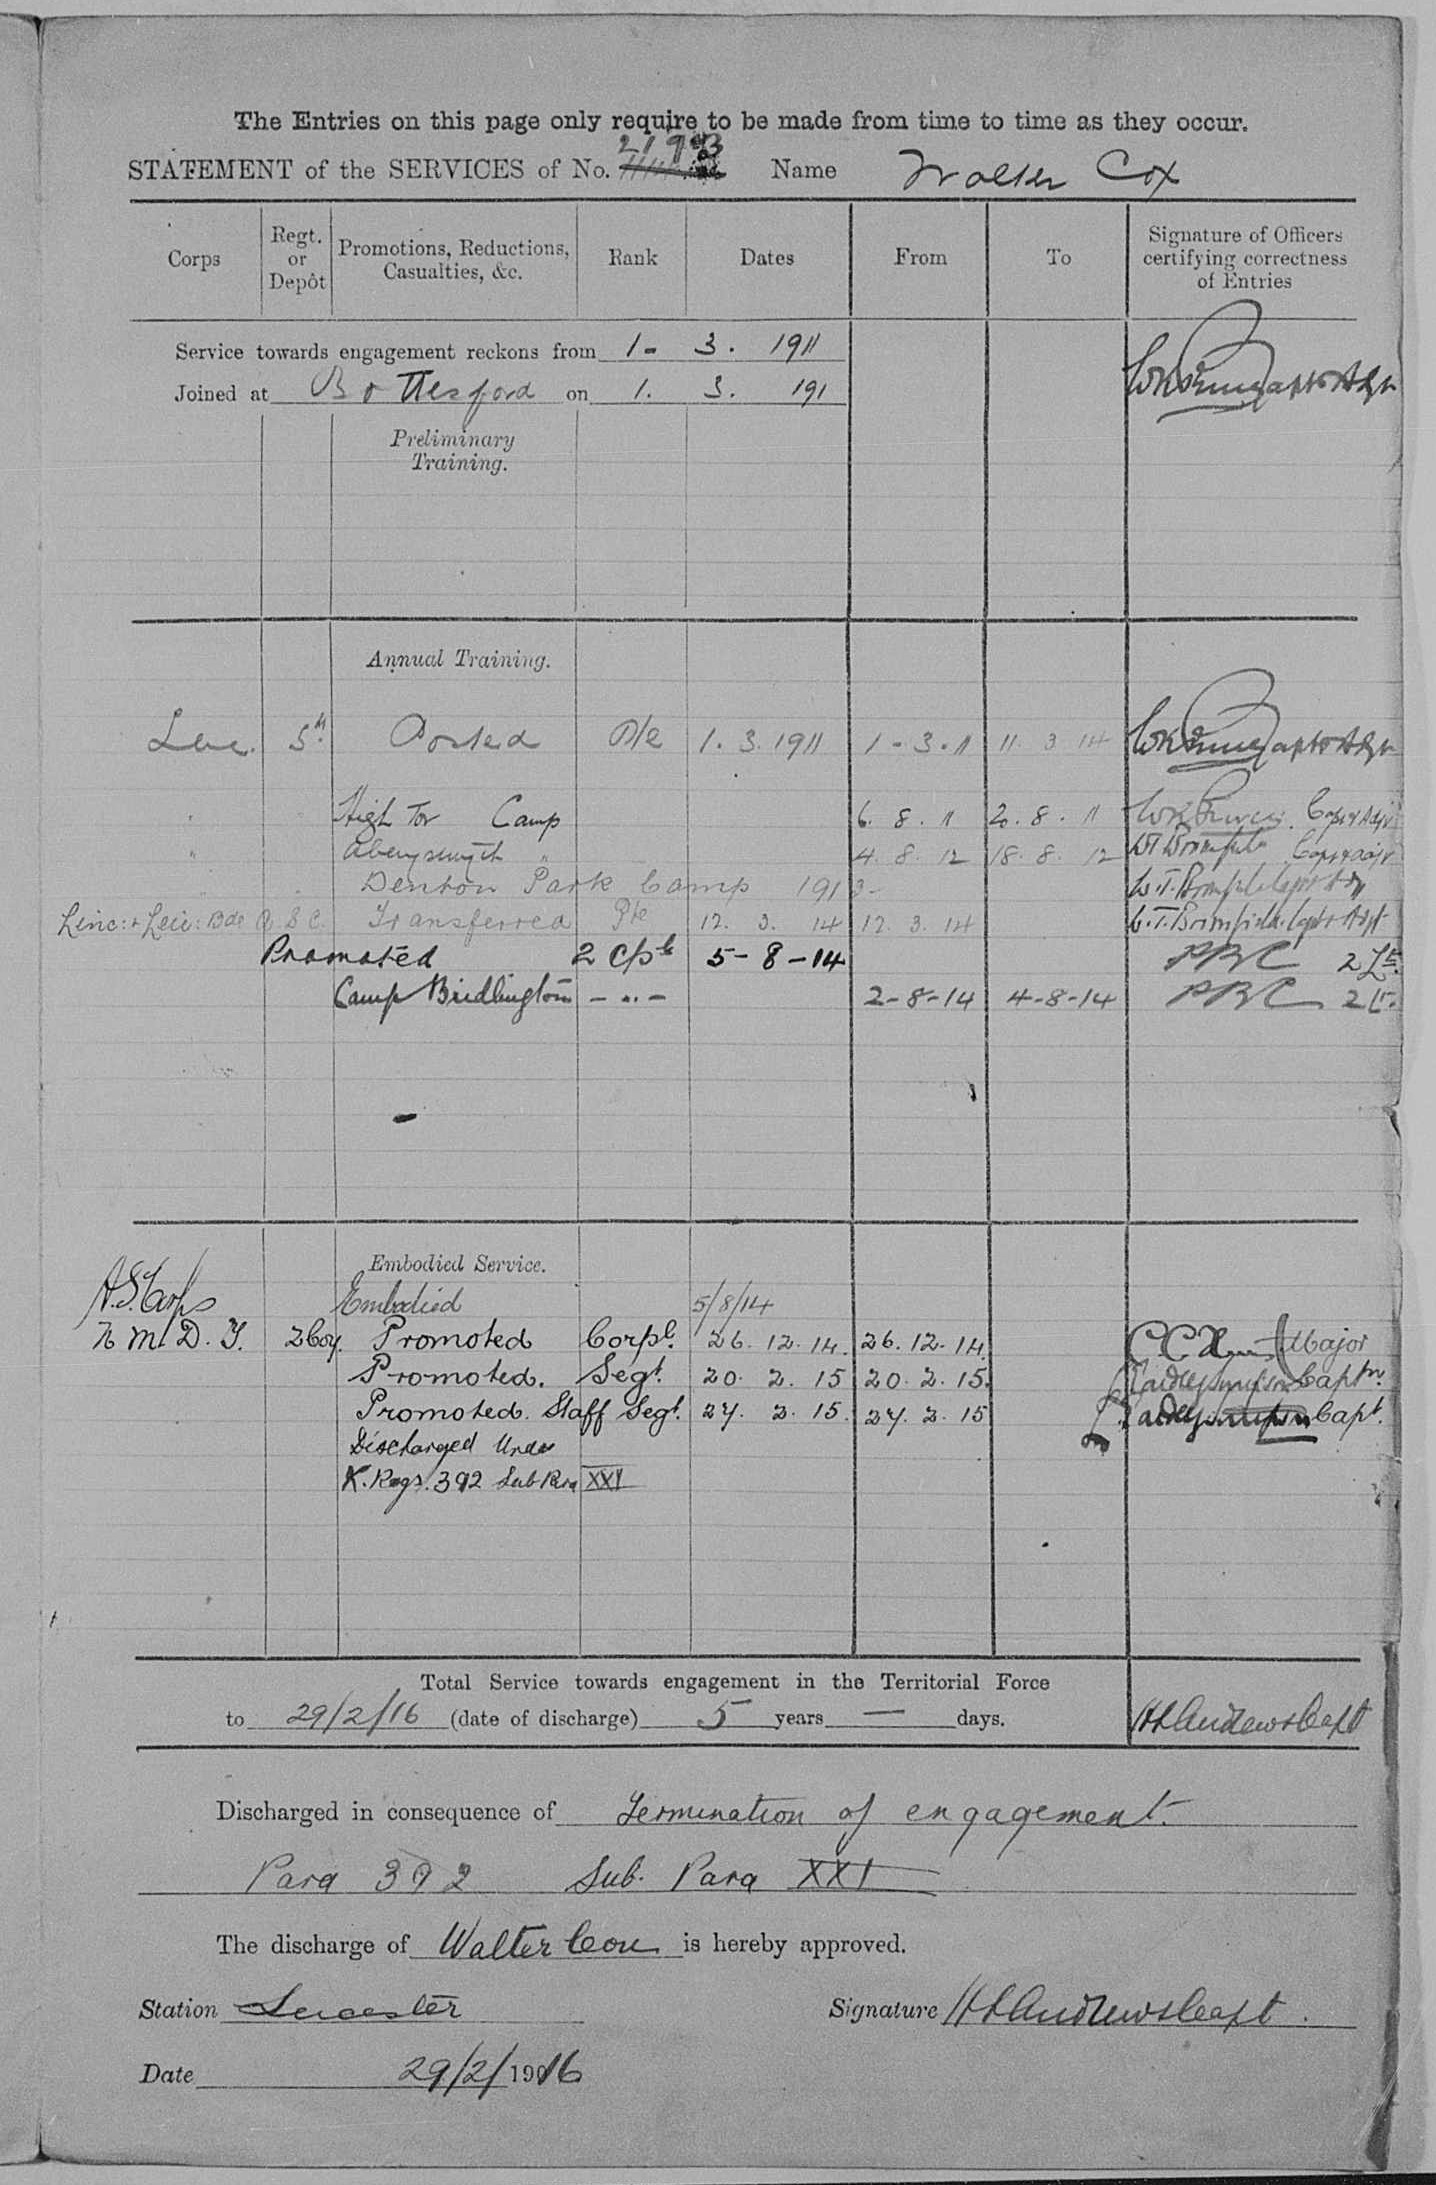 The Entries on this page only require to be made from time to time as they occur.
STATEMENT of the SERVICES of No. Name Walter Cox
Corps Regt. or Depôt Promotions, Reductions, Casualties, &c. Rank Dates From To Signature of Officers certifying correctness of Entries
Service towards engagement reckons from 1 - 3 . 1911
Joined at Bottesford on 1. 3. 191
Capt & Adjr
Preliminary
Training.
Annual Training.
Leic. 5th Posted Pte 1. 3. 1911 1 - 3 - 11 11 3 14 Capt & Adjr
High Tor Camp 6. 8. 11 20. 8. 11 Capt & Adjr
" Aberystwyth " 4. 8. 12 18. 8. 12 Capt & Adjr
Denton Park Camp 1913 - W.T. Bromfield Capt & Adj
Linc: & Leic: Bde A S C. Transferred Pte 12. 3. 14 12. 3. 14 W.T. Bromfield. Capt & Adjt
Promoted 2 Cpl 5 - 8 - 14 PBC 2 Lt.
Camp Bridlington - " - 2 - 8 - 14 4 - 8 - 14 PBC 2 Lt.
Embodied Service.
A.S. Corps Embodied 5/8/14
N M. D. T. 2 Coy. Promoted Corpl. 26. 12. 14. 26. 12. 14. Major
Promoted. Segt. 20. 2. 15 20. 2. 15. Captn.
Promoted. Staff Segt. 27. 2. 15. 27. 2. 15 Capt.
Discharged Under
K. Regs. 392 Sub Para XXI
Total Service towards engagement in the Territorial Force
to 29/2/16 (date of discharge) 5 years — days. H L Andrews Capt
Discharged in consequence of Termination of engagement.
Para 392 Sub. Para XXI
The discharge of Walter Cox is hereby approved.
Station Leicester Signature H L Andrews Capt.
Date 29/2/1916